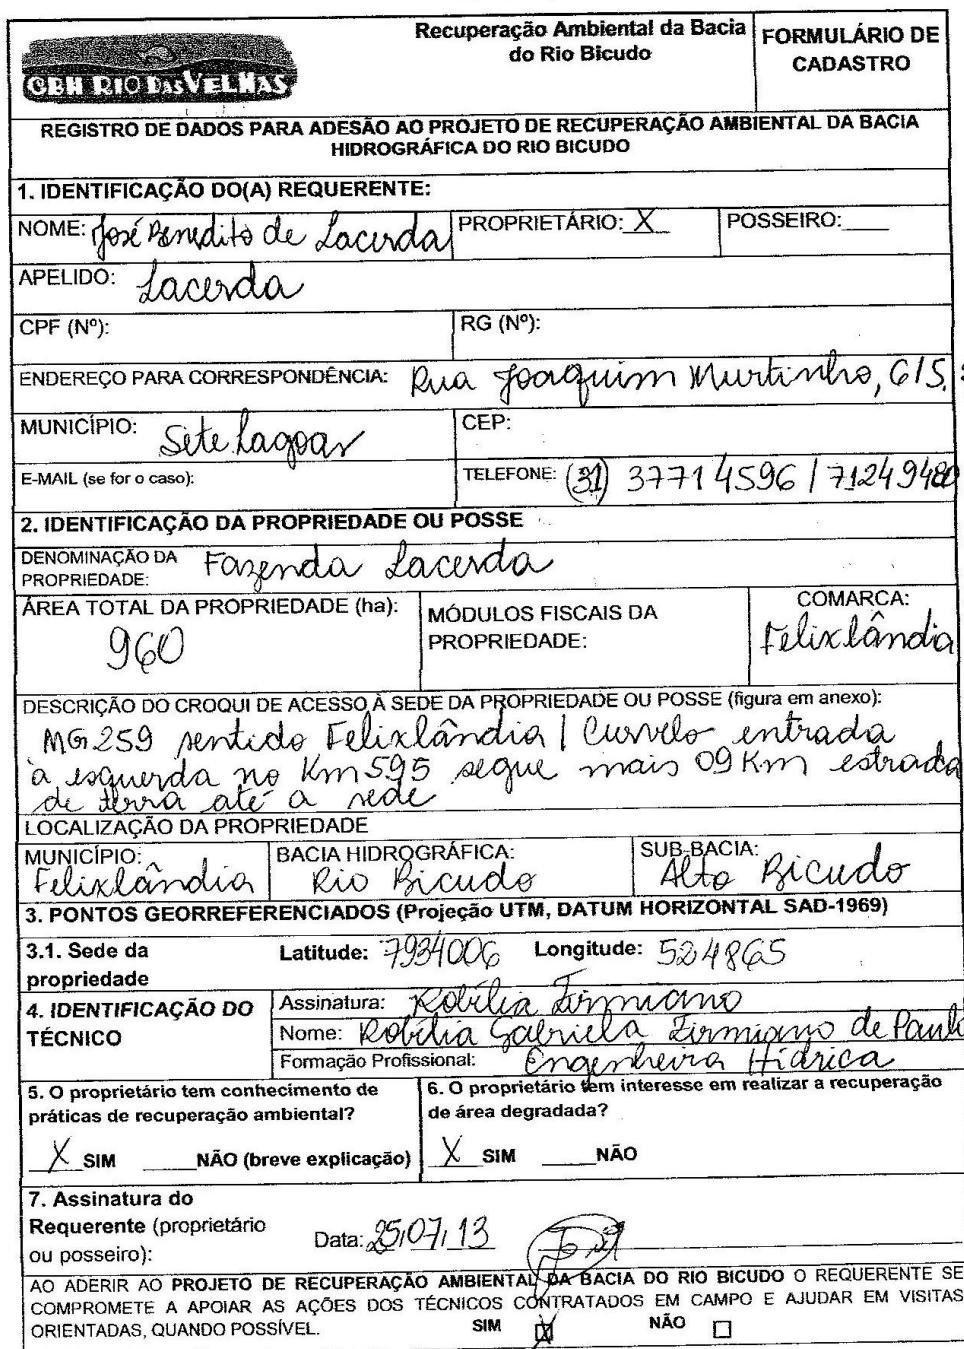 CBH RIO DAS VELHAS
Recuperação Ambiental da Bacia
do Rio Bicudo
FORMULÁRIO DE
CADASTRO
REGISTRO DE DADOS PARA ADESÃO AO PROJETO DE RECUPERAÇÃO AMBIENTAL DA BACIA
HIDROGRÁFICA DO RIO BICUDO
1. IDENTIFICAÇÃO DO(A) REQUERENTE:
NOME: José Benedito de Lacerda PROPRIETÁRIO: X POSSEIRO:____
APELIDO: Lacerda
CPF (Nº): RG (Nº):
ENDEREÇO PARA CORRESPONDÊNCIA: Rua Joaquim Murtinho, 615.
MUNICÍPIO: Sete Lagoas CEP:
E-MAIL (se for o caso): TELEFONE: (31) 37714596 / 71249480
2. IDENTIFICAÇÃO DA PROPRIEDADE OU POSSE
DENOMINAÇÃO DA
PROPRIEDADE: Fazenda Lacerda
ÁREA TOTAL DA PROPRIEDADE (ha):
960
MÓDULOS FISCAIS DA
PROPRIEDADE:
COMARCA:
Felixlândia
DESCRIÇÃO DO CROQUI DE ACESSO À SEDE DA PROPRIEDADE OU POSSE (figura em anexo):
MG259 sentido Felixlândia / Curvelo entrada
à esquerda no Km 595 segue mais 09 Km estrada
de terra até a sede
LOCALIZAÇÃO DA PROPRIEDADE
MUNICÍPIO:
Felixlândia
BACIA HIDROGRÁFICA:
Rio Bicudo
SUB-BACIA:
Alto Bicudo
3. PONTOS GEORREFERENCIADOS (Projeção UTM, DATUM HORIZONTAL SAD-1969)
3.1. Sede da
propriedade
Latitude: 7934006 Longitude: 524865
4. IDENTIFICAÇÃO DO
TÉCNICO
Assinatura: Robélia Firmiano
Nome: Robélia Gabriela Firmiano de Paula
Formação Profissional: Engenheira Hídrica
5. O proprietário tem conhecimento de
práticas de recuperação ambiental?
X SIM ____NÃO (breve explicação)
6. O proprietário tem interesse em realizar a recuperação
de área degradada?
X SIM ____NÃO
7. Assinatura do
Requerente (proprietário
ou posseiro):
Data: 25/07/13
AO ADERIR AO PROJETO DE RECUPERAÇÃO AMBIENTAL DA BACIA DO RIO BICUDO O REQUERENTE SE
COMPROMETE A APOIAR AS AÇÕES DOS TÉCNICOS CONTRATADOS EM CAMPO E AJUDAR EM VISITAS
ORIENTADAS, QUANDO POSSÍVEL. SIM X NÃO